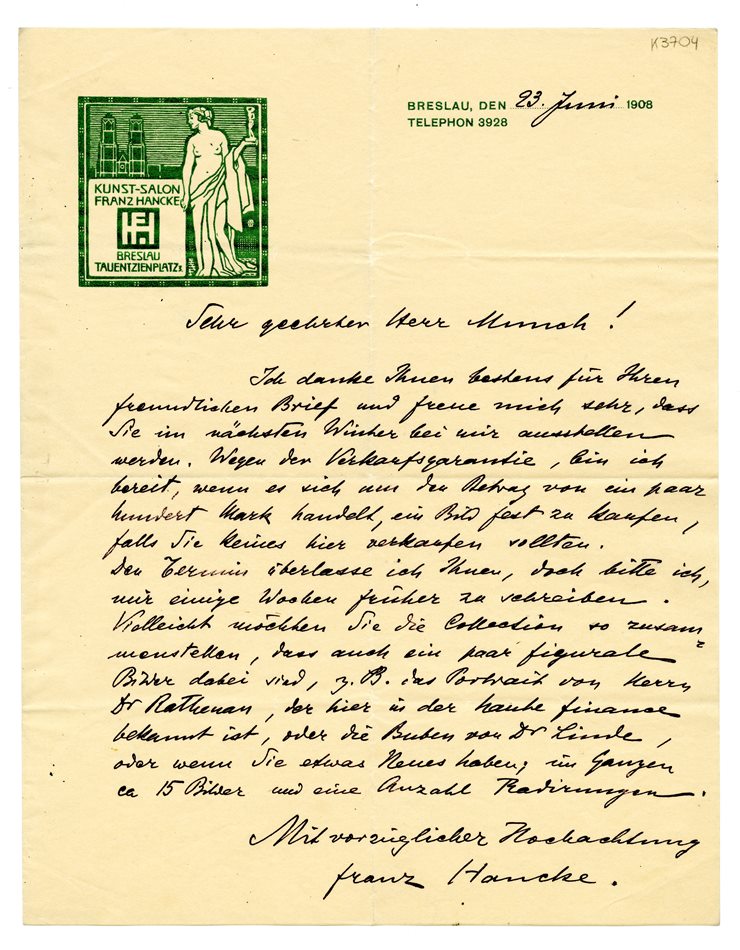 K3704
BRESLAU, DEN 23. Juni 1908
TELEPHON 3928
KUNST-SALON
FRANZ HANCKE
BRESLAU
TAUENTZIENPLATZ
Sehr geehrter Herr Munch!
Ich danke Ihnen bestens für Ihren
freundlichen Brief und freue mich sehr, dass
Sie im nächsten Winter bei mir ausstellen
werden. Wegen der Verkaufsgarantie, bin ich
bereit, wenn es sich um den Betrag von ein paar
hundert Mark handelt, ein Bild fest zu kaufen,
falls Sie keines hier verkaufen sollten.
Den Termin überlasse ich Ihnen, doch bitte ich,
mir einige Wochen früher zu schreiben.
Vielleicht möchten Sie die Collection so zusam=
menstellen, dass auch ein paar figurale
Bilder dabei sind, z. B. das Portrait von Herrn
Dr Rathenau, der hier in der haute finance
bekannt ist, oder die Buben von Dr Linde,
oder wenn Sie etwas Neues haben; im Ganzen
ca 15 Bilder und eine Anzahl Radirungen.
Mit vorzüglicher Hochachtung
Franz Hancke.